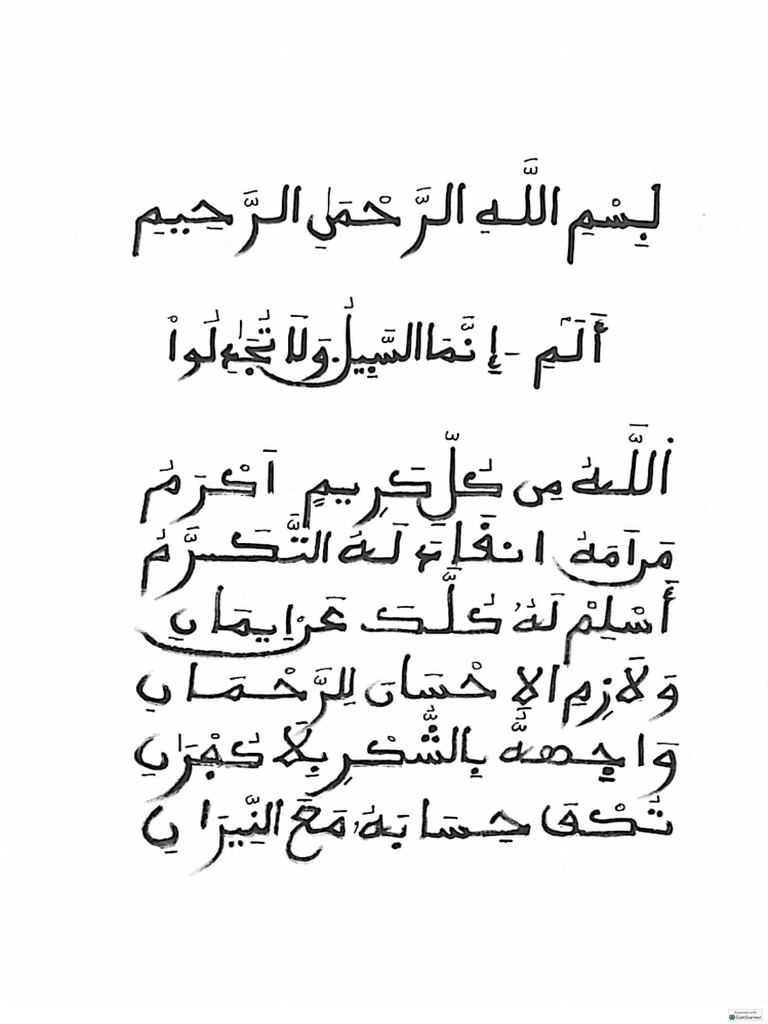 بِسْمِ اللَّهِ الرَّحْمَٰنِ الرَّحِيمِ
أَلَمِ - إِنَّمَا السَّبِيلُ وَلَا تُجَٰدِلُواْ
اَللَّهُ مِن كُلِّ كَرِيمٍ اَكْرَمُ
مَرَامَهُ انفَاءَ لَهُ التَّكَرُّمُ
أَسْلِمْ لَهُ كُلَّكَ عَن اِيمَانِ
وَلَازِمِ الاِحْسَانَ لِلرَّحْمَانِ
وَاجِهْهُ بِالشُّكْرِ بِلَا كُفْرَانِ
تُكْفَ حِسَابَهُ مَعَ النِّيرَانِ
Scanned with
CamScanner